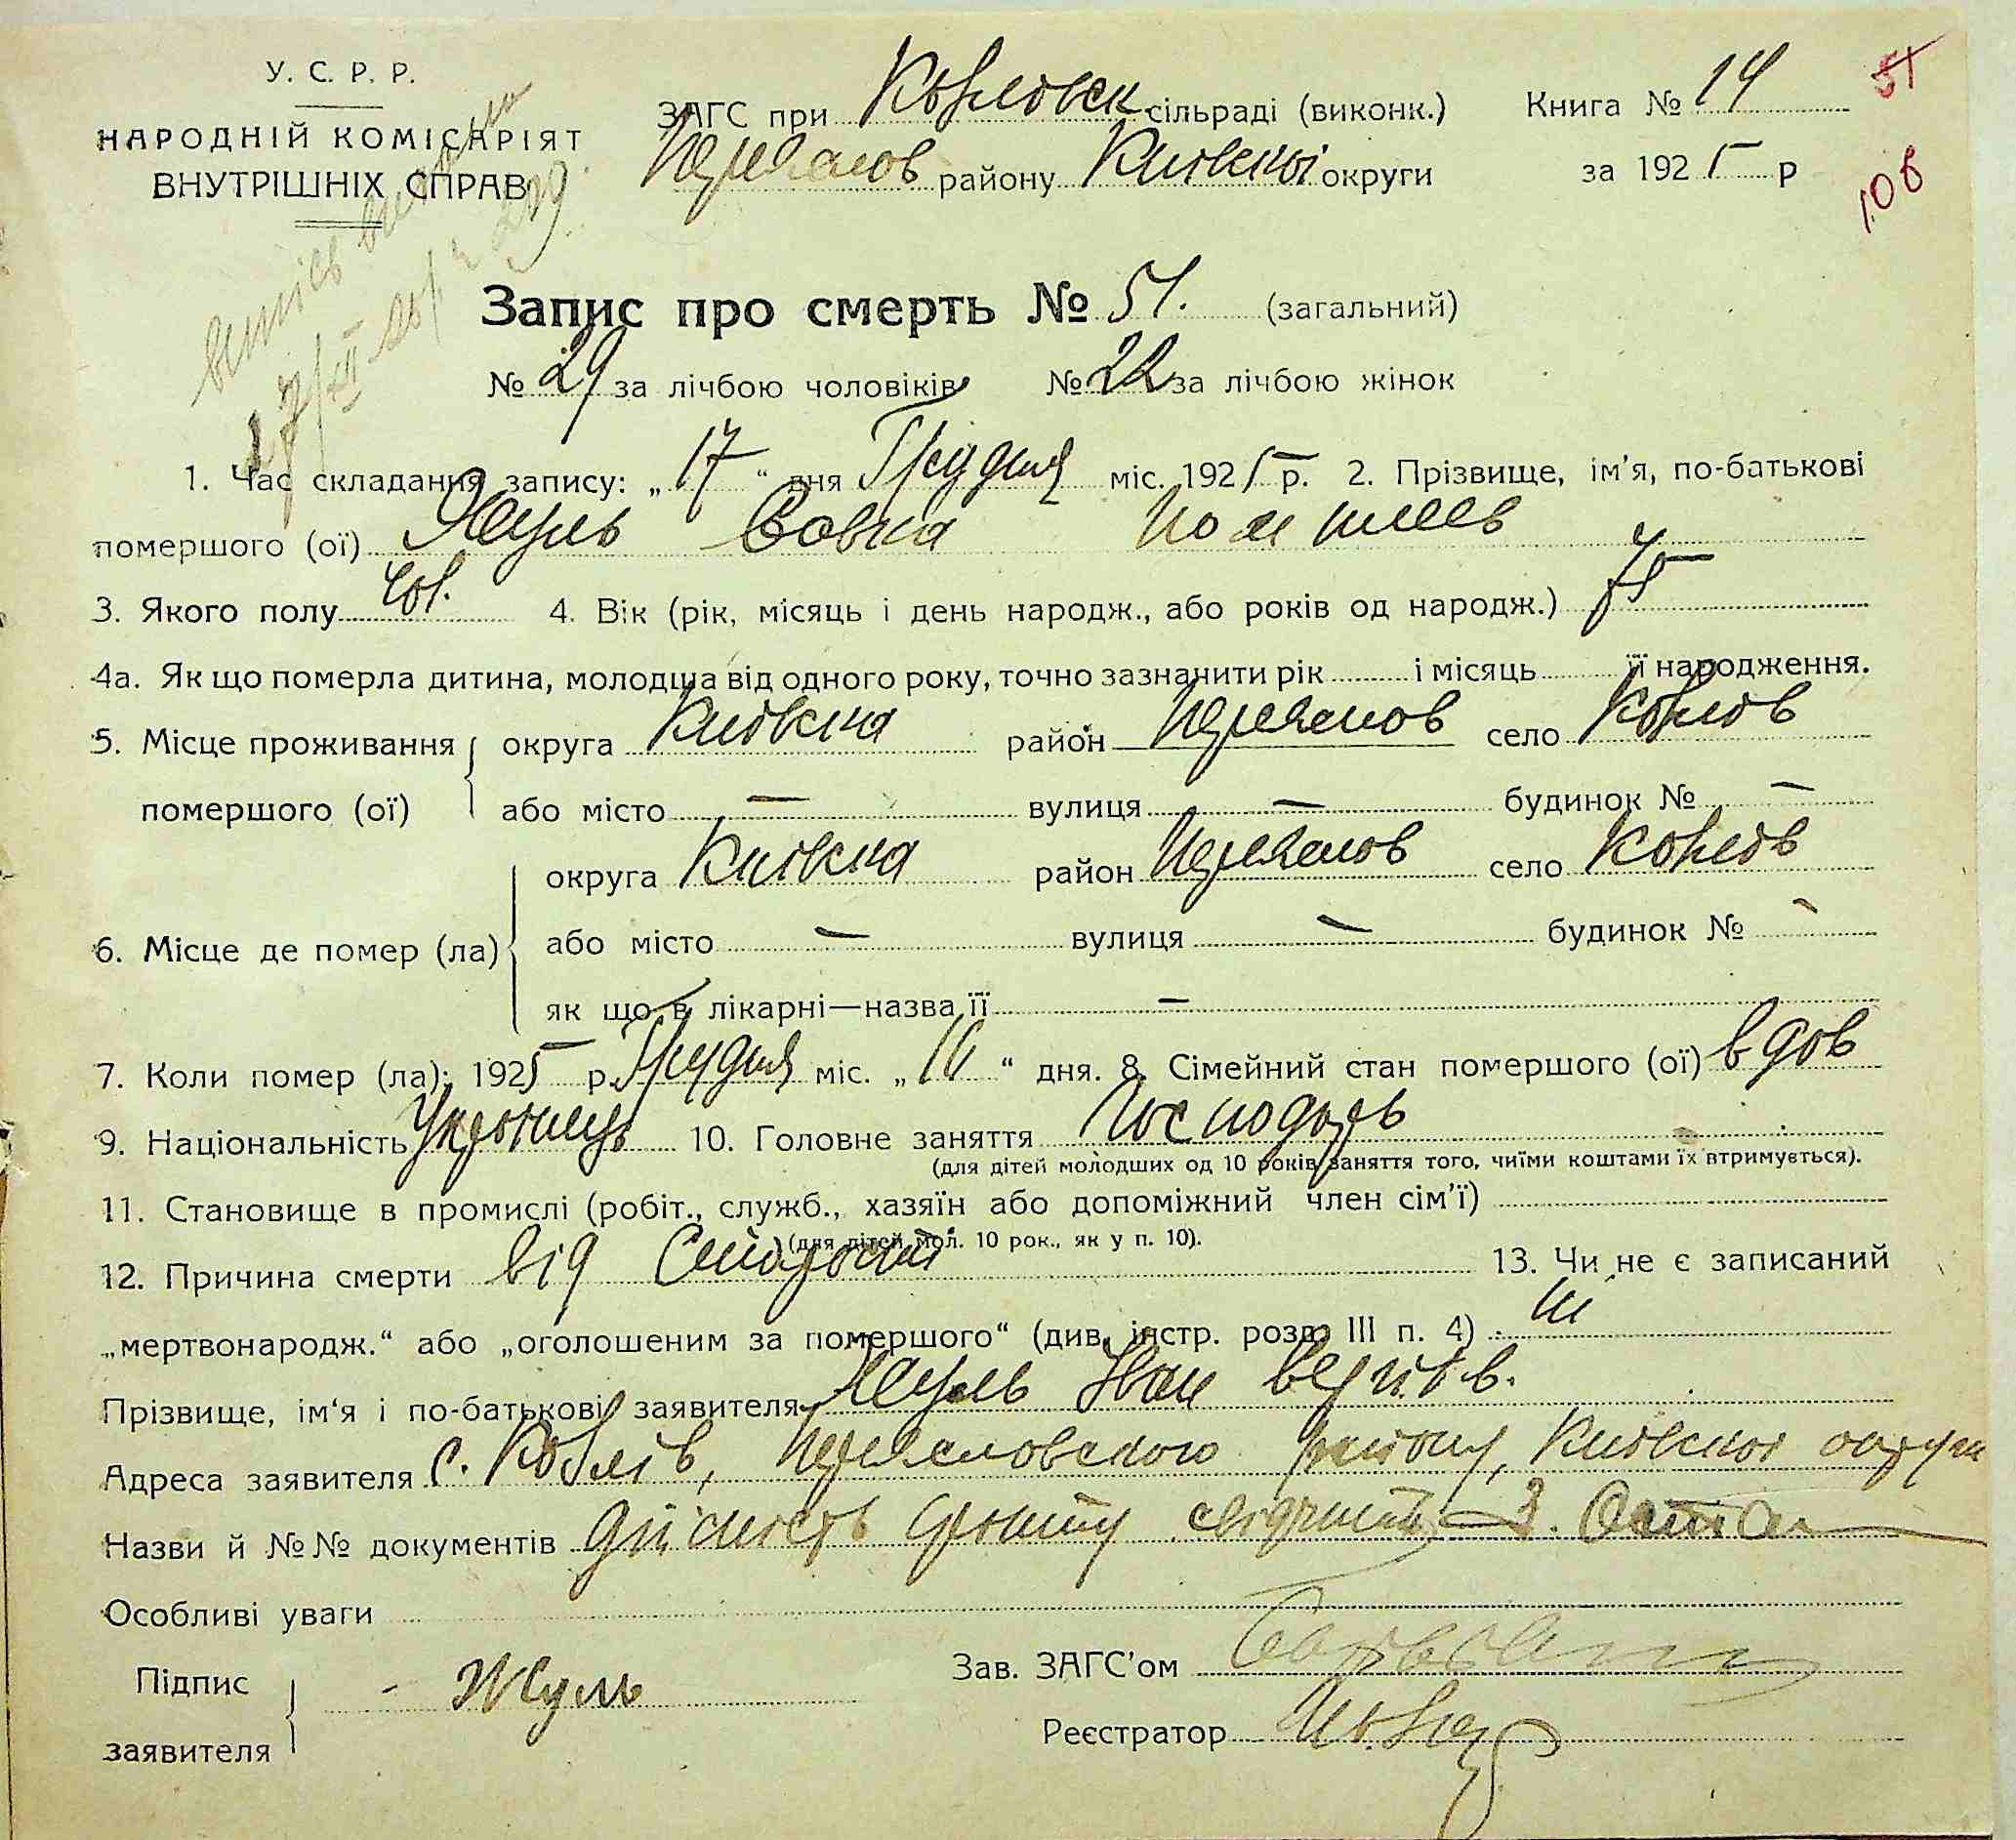 У. С. Р. Р.
НАРОДНІЙ КОМІСАРІЯТ
ВНУТРІШНІХ СПРАВ
ЗАГС при Ковлівск сільраді (виконк.)
Переяслов району Київської округи
Книга № 14
за 1925 р
51
108
Запис про смерть № 51. (загальний)
№ 29 за лічбою чоловіків № 22 за лічбою жінок
1. Час складання запису: „17“ дня Грудня міс. 1925 р. 2. Прізвище, ім'я, по-батькові
помершого (ої) Жуль Савка
3. Якого полу чол. 4. Вік (рік, місяць і день народж., або років од народж.) 75
4а. Як що померла дитина, молодша від одного року, точно зазначити рік і місяць її народження.
5. Місце проживання помершого (ої) округа Київска район Переяслов село Ковлів
або місто — вулиця — будинок № —
6. Місце де помер (ла) округа Київска район Переяслов село Ковлів
або місто — вулиця — будинок № —
як що в лікарні—назва її —
7. Коли помер (ла): 1925 р. Грудня міс. „16“ дня. 8. Сімейний стан помершого (ої) вдов
9. Національність Українець 10. Головне заняття Господарь
(для дітей молодших од 10 років заняття того, чиїми коштами їх втримується).
11. Становище в промислі (робіт., служб., хазяїн або допоміжний член сім'ї)
(для дітей мол. 10 рок., як у п. 10).
12. Причина смерти від Старости 13. Чи не є записаний
„мертвонародж.“ або „оголошеним за помершого“ (див. інстр. розд. III п. 4) ні
Прізвище, ім'я і по-батькові заявителя Жуль Іван
Адреса заявителя с. Ковлів, Переясловского району, Київскої округи
Назви й №№ документів дійсність
Особливі уваги
Підпис заявителя Жуль
Зав. ЗАГС'ом
Реєстратор